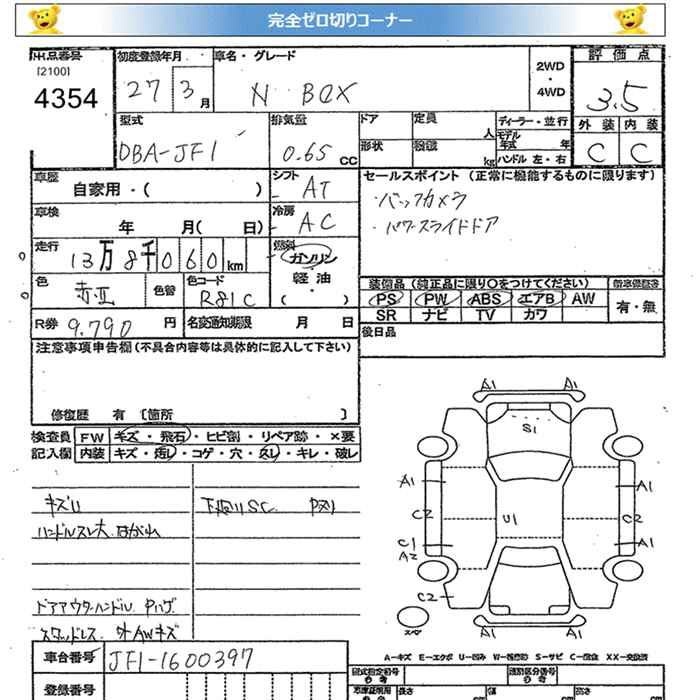 完全ゼロ切りコーナー
出品番号 初度登録年月 車名・グレード 2WD・4WD 評価点
[2100]
4354 27 3月 N BOX 3.5
型式 排気量 ドア 定員 人 ディーラー・並行 外装 内装
DBA-JF1 0.65 CC 形状 kg モデル年式 年 ハンドル 左・右 C C
車歴 自家用・( ) シフト AT セールスポイント (正常に機能するものに限ります)
・バックカメラ
車検 年 月( 日) 冷房 AC ・パワースライドドア
走行 13万8千060km 燃料 ガソリン
軽油
・( )
色 赤II 色替 色コード R81C 装備品(純正品に限り○をつけてください) 新車保証書
PS PW ABS エアB AW 有・無
R券 9.790 円 名変通知期限 月 日 SR ナビ TV カワ
注意事項申告欄(不具合内容等は具体的に記入して下さい) 後日品
修復歴 有 [箇所 ]
検査員 FW キズ・飛石・ヒビ割・リペア跡・×要
記入欄 内装 キズ・汚レ・コゲ・穴・スレ・キレ・破レ
キズ 下廻りSC
ハンドルスレ大 はがれ
ドアアウターハンドル Pハゲ
スタッドレス 外AWキズ
A1 A1
S1
A1 A1
C2 U1 C2
C1 A1
A2
C2
A1 A1
スペア
A-キズ E-エクボ U-凹み W-補修跡 S-サビ C-腐食 XX-交換済
車台番号 JF1-1600397
登録番号